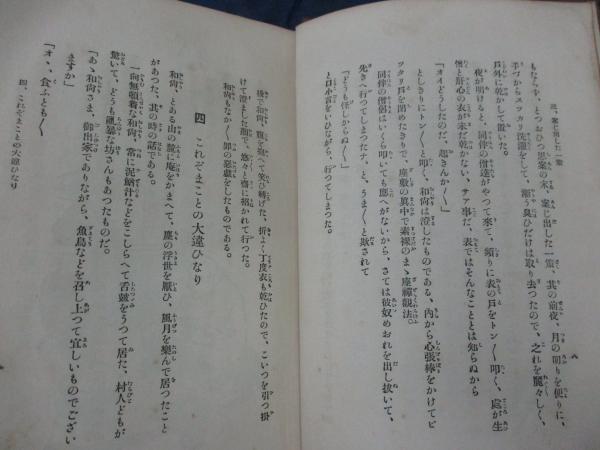 三、案じ出した一策
八
もなら争、とつおひつ思案の末、案じ出した一策、其の前夜、月の明りを便りに、
手づからスツカリ洗濯をして、漸う臭ひだけは取り去つたので、之れを麗々しく、
戸外に乾かして置いた。
夜が明けると、同伴の僧達がやつて來て、頻りに表の戸をトン〳〵叩く、處が生
憎と肝心の衣が未だ乾かない、サア事だ、表ではそんなこととは知らぬから
「オイどうしたのだ、起きんか〳〵」
としきりにトン〳〵と叩く、和尚は澄したものである、内から心張棒をかけてピ
ツタリ戸を閉めたきりで、座敷の眞中で素裸のまゝ座禪觀法。
同伴の僧侶はいくら叩いても應へがないから、さては彼奴めおれを出し拔いて、
先きへ行つてしまつたナ、と、うま〳〵と欺されて
「どうも怪しからぬ〳〵」
と口小言をいひながら、行つてしまつた。
後で和尚、腹を抱へて笑ひ轉げた、折よく丁度衣も乾ひたので、こいつを引つ掛
けて澄ました顔で、悠々と齋に招かれて行つた。
和尚もなか〳〵罪の深い戯をしたものである。
四 これぞまことの大違ひなり
和尚、とある山の麓に庵をかまへて、塵の浮世を厭ひ、風月を樂んで居つたこと
があつた、其の時の話である。
一向無頓着な和尚、常に泥鰌汁などをこしらへて舌皷をうつて居た、村人どもが
驚いて、どうも亂暴な坊さんもあつたものだ。
「あゝ和尚さま、御出家でありながら、魚鳥などを召し上つて宜しいものでござい
ますか」
「オヽ、食ふとも〳〵
四、これぞまことの大違ひなり